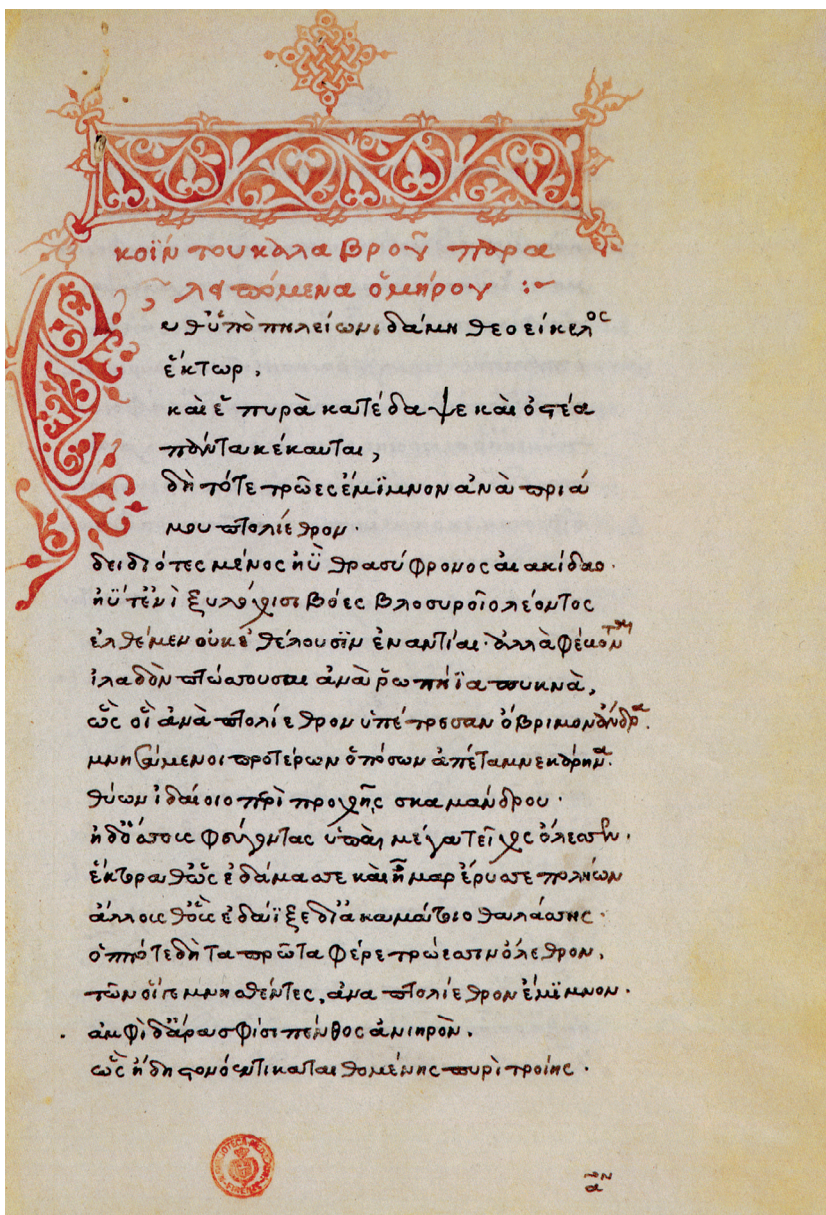 κοΐντου καλαβροῦ παρα
λειπόμενα ὁμήρου :~
Εὖθ' ὑπὸ πηλείωνι δάμη θεοείκελος
ἕκτωρ,
καὶ ἑ πυρὰ κατέδαψε καὶ ὀστέα
πάντα κέκαυται,
δὴ τότε τρῶες ἔμϊμνον ἀνὰ πριά
μου πτολίεθρον·
δειδιότες μένος ἠῢ θρασύφρονος αἰακίδαο·
ἠΰτ' ἐνὶ ξυλόχοισι βόες βλοσυροῖο λέοντος
ἐλθέμεν οὐκ ἐθέλουσϊν ἐναντίαι· ἀλλὰ φέβονται
ἰλαδὸν πτώσσουσαι ἀνὰ ῥωπήϊα πυκνὰ,
ὣς οἳ ἀνὰ πτολίεθρον ὑπέτρεσαν ὄβριμον ἄνδρα.
μνησάμενοι προτέρων ὁπόσων ἀπέταμνε κάρηνα.
θύων ἰδαίοιο περὶ προχοῇς σκαμάνδρου·
ἠδ' ὅσσους φεύγοντας ὑπαὶ μέγα τεῖχος ὄλεσσεν·
ἕκτορα θ' ὡς ἐδάμασσε καὶ ἔρυσσε πολήων
ἄλλους θ' οὓς ἐδάϊξε δι' ἀκαμάτοιο θαλάσσης·
ὁππότε δὴ τα πρῶτα φέρε τρώεσσιν ὄλεθρον,
τῶν οἵγε μνησθέντες, ἀνα πτολίεθρον ἔμϊμνον·
ἀμφὶ δ' ἄρα σφίσι πένθος ἀνιηρὸν.
ὡς ἤδη στονόεντι καταιθομένης πυρὶ τροίης·